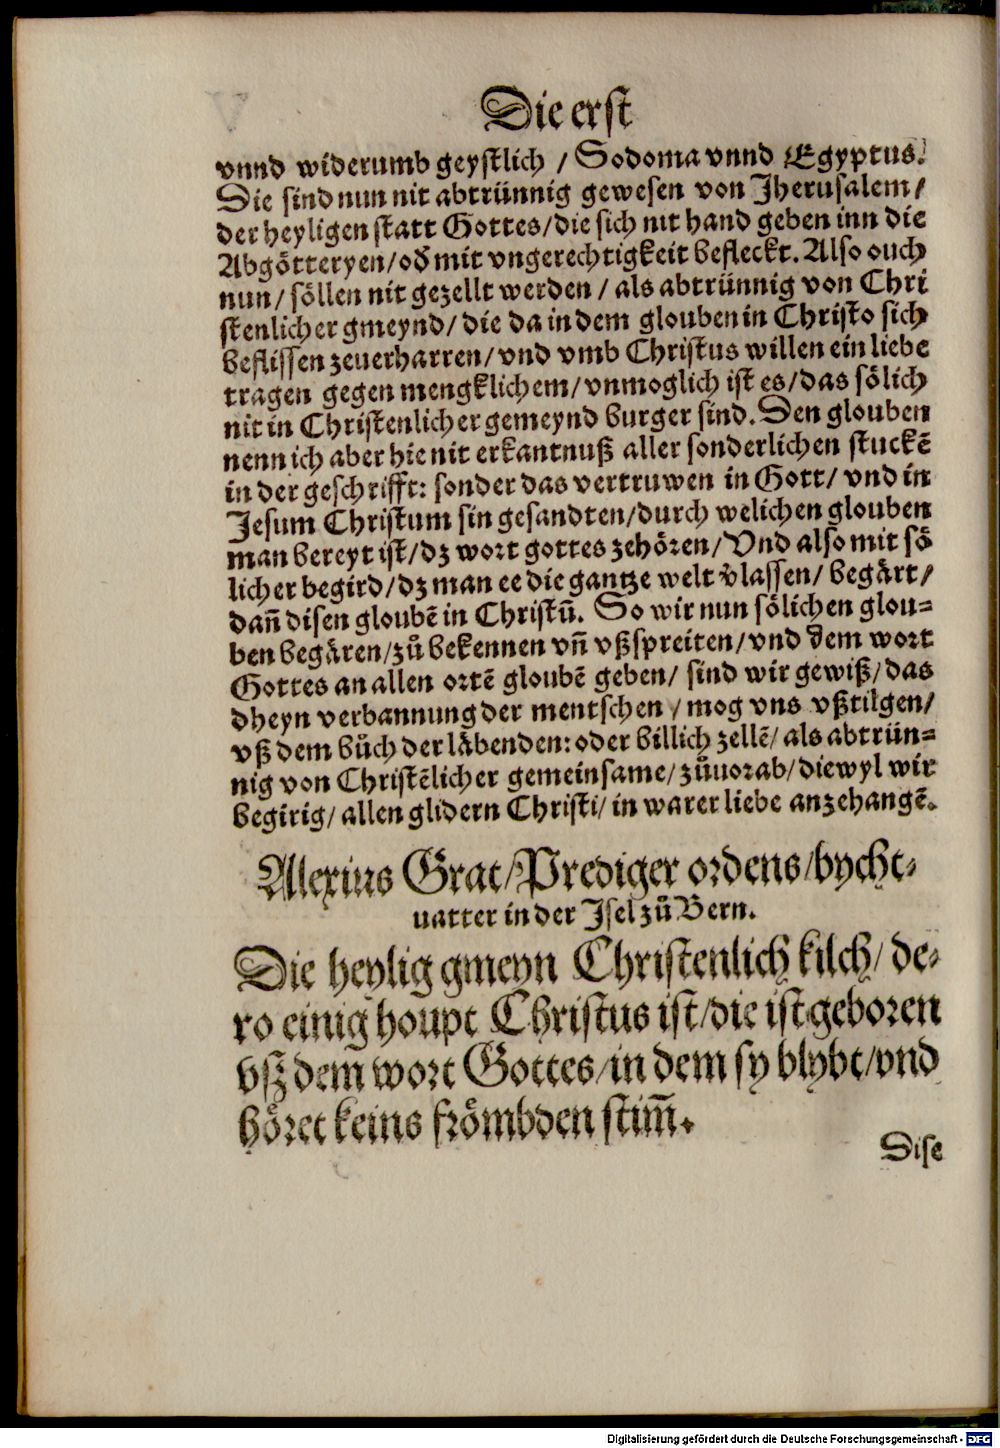 Die erst
vnnd widerumb geystlich / Sodoma vnnd Egyptus.
Die sind nun nit abtrünnig gewesen von Jherusalem /
der heyligen statt Gottes / die sich nit hand geben inn die
Abgötteryen / od̕ mit vngerechtigkeit befleckt. Also ouch
nun / söllen nit gezellt werden / als abtrünnig von Chri
stenlicher gmeynd / die da in dem glouben in Christo sich
beflissen zeuerharren / vnd vmb Christus willen ein liebe
tragen gegen mengklichem / vnmoglich ist es / das sölich
nit in Christenlicher gemeynd burger sind. Den glouben
nenn ich aber hie nit erkantnuß aller sonderlichen stuckē
in der geschrifft: sonder das vertruwen in Gott / vnd in
Jesum Christum sin gesandten / durch welichen glouben
man bereyt ist / dz wort gottes zehören / Vnd also mit sö
licher begird / dz man ee die gantze welt v̕lassen / begärt /
dañ disen gloubē in Christū. So wir nun sölichen glou-
ben begären / zů bekennen vñ vßspreiten / vnd dem wort
Gottes an allen ortē gloubē geben / sind wir gewiß / das
dheyn verbannung der mentschen / mog vns vßtilgen /
vß dem bůch der läbenden: oder billich zellē / als abtrün-
nig von Christēlicher gemeinsame / zůuorab / diewyl wir
begirig / allen glidern Christi / in warer liebe anzehangē.
Alexius Grat / Prediger ordens / bycht-
uatter in der Jsel zů Bern.
Die heylig gmeyn Christenlich kilch / de-
ro einig houpt Christus ist / die ist geboren
vß dem wort Gottes / in dem sy blybt / vnd
höret keins frömbden stim̃.
Dise
Digitalisierung gefördert durch die Deutsche Forschungsgemeinschaft - DFG